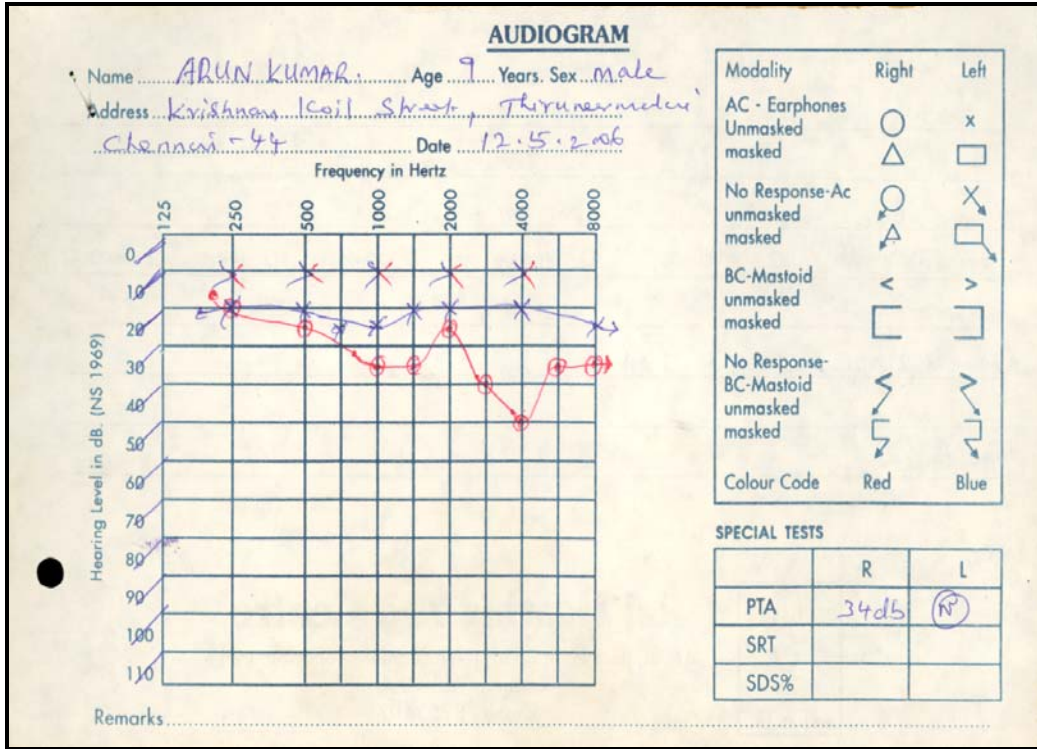 AUDIOGRAM
Name ARUN KUMAR. Age 9 Years. Sex male
Address Krishnan Koil Street,
Chennai - 44 Date 12.5.2006
Frequency in Hertz
125 250 500 1000 2000 4000 8000
Hearing Level in dB. (NS 1969)
0
10
20
30
40
50
60
70
80
90
100
110
Remarks
Modality Right Left
AC - Earphones
Unmasked
masked
No Response-Ac
unmasked
masked
BC-Mastoid
unmasked
masked
No Response-
BC-Mastoid
unmasked
masked
Colour Code Red Blue
SPECIAL TESTS
R L
PTA 34db N
SRT
SDS%